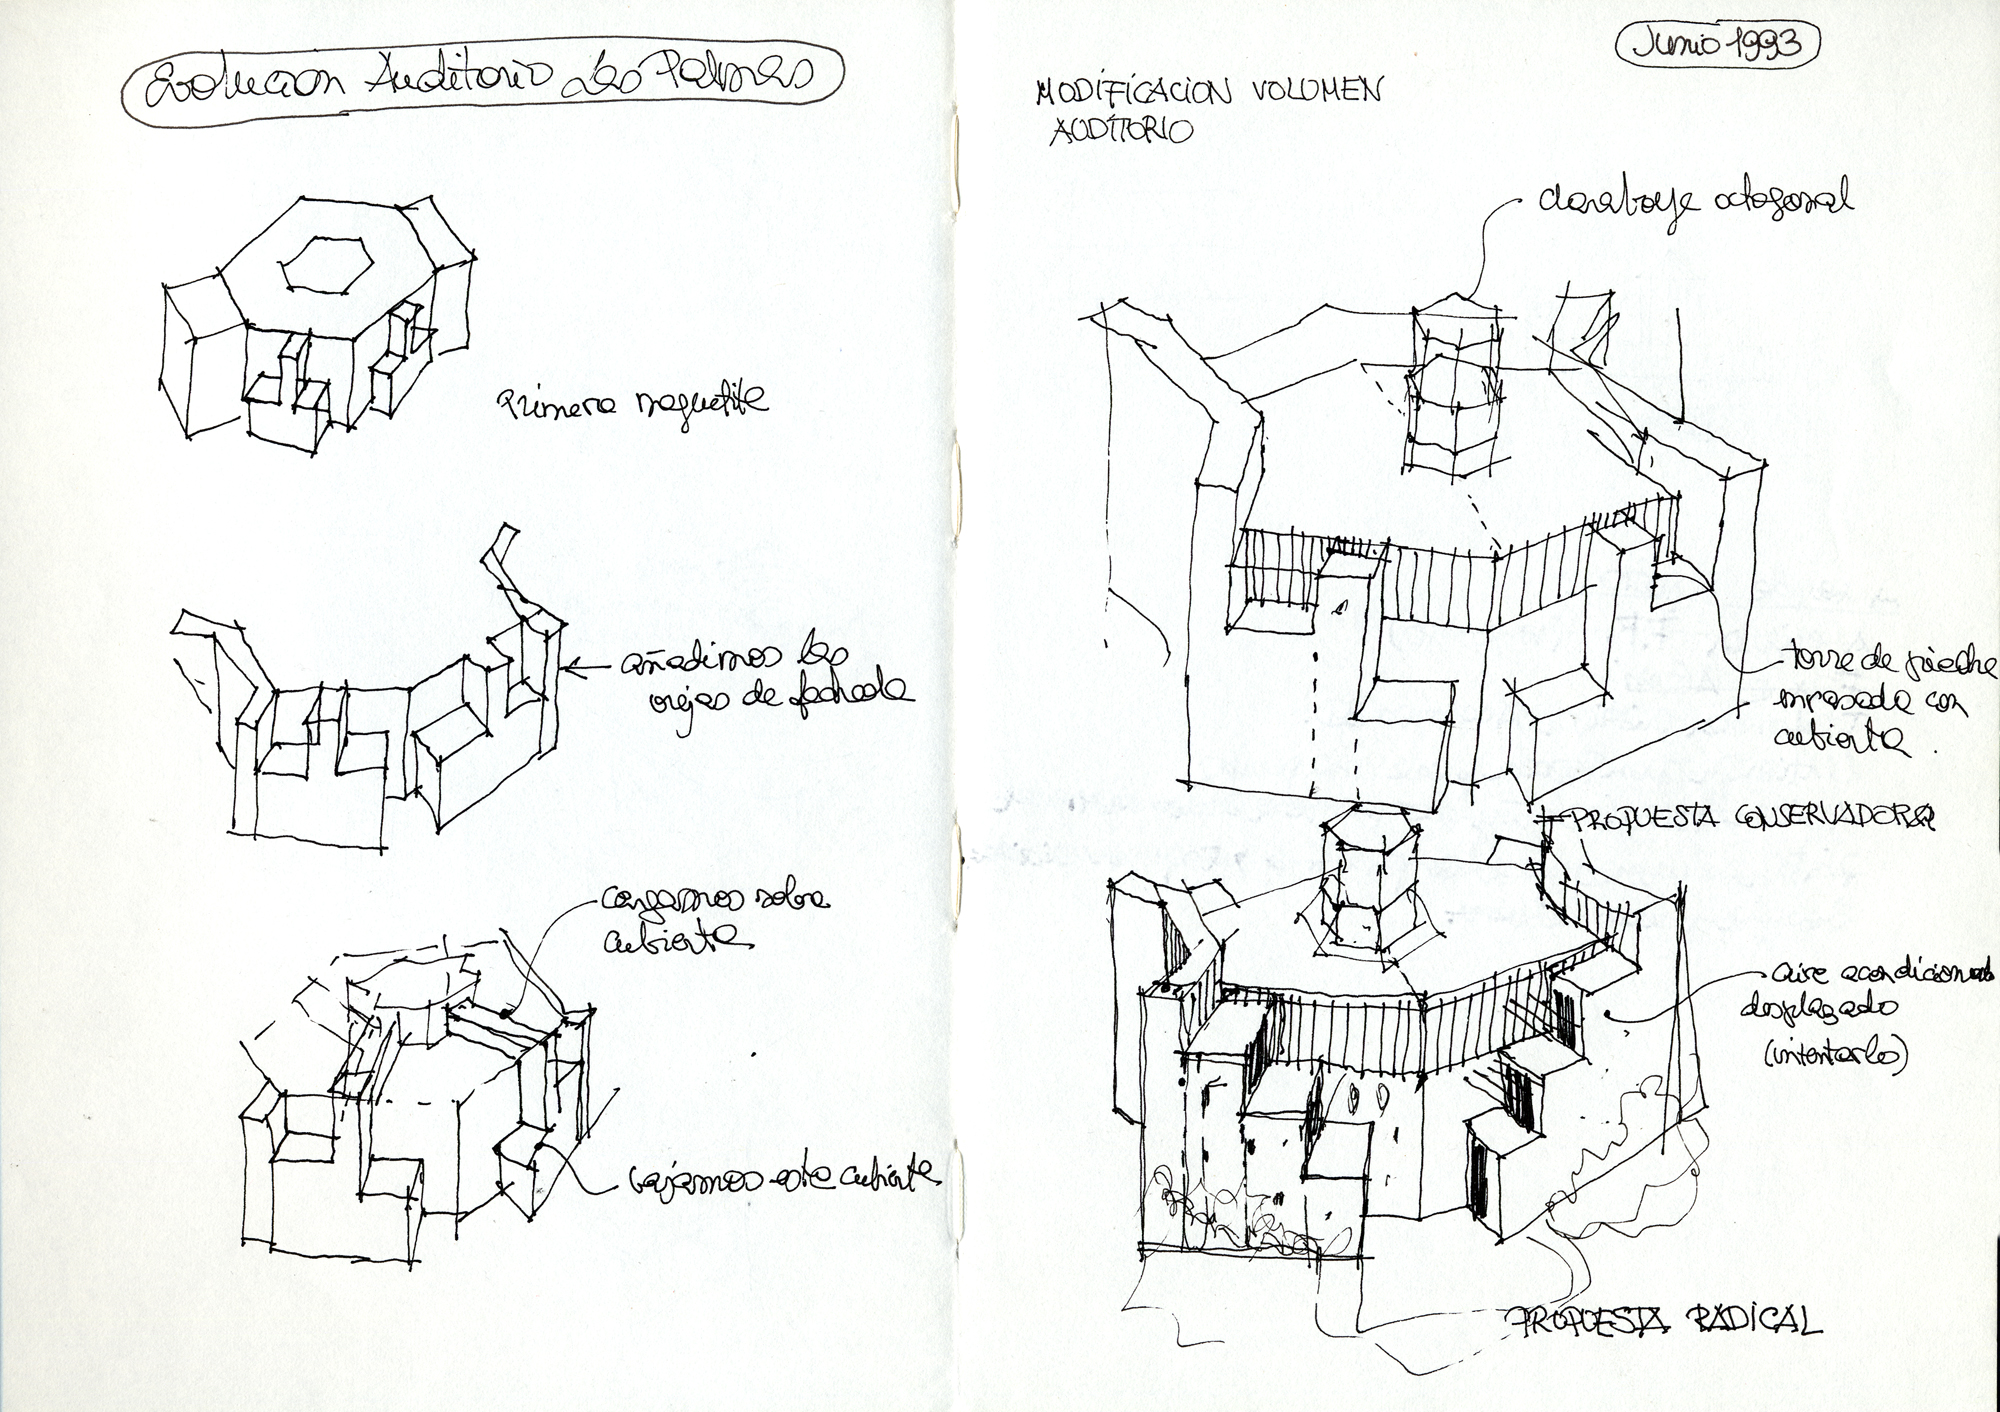 Evolucion Auditorio Las Palmas
Primera maquetita
añadimos las
orejas de fachada
cargamos sobre
cubierta
bajamos esta cubierta
Junio 1993
MODIFICACION VOLUMEN
AUDITORIO
claraboya octogonal
torre de piedra
enrasada con
cubierta
PROPUESTA CONSERVADORA
aire acondicionado
desplazado
(intentarlo)
PROPUESTA RADICAL